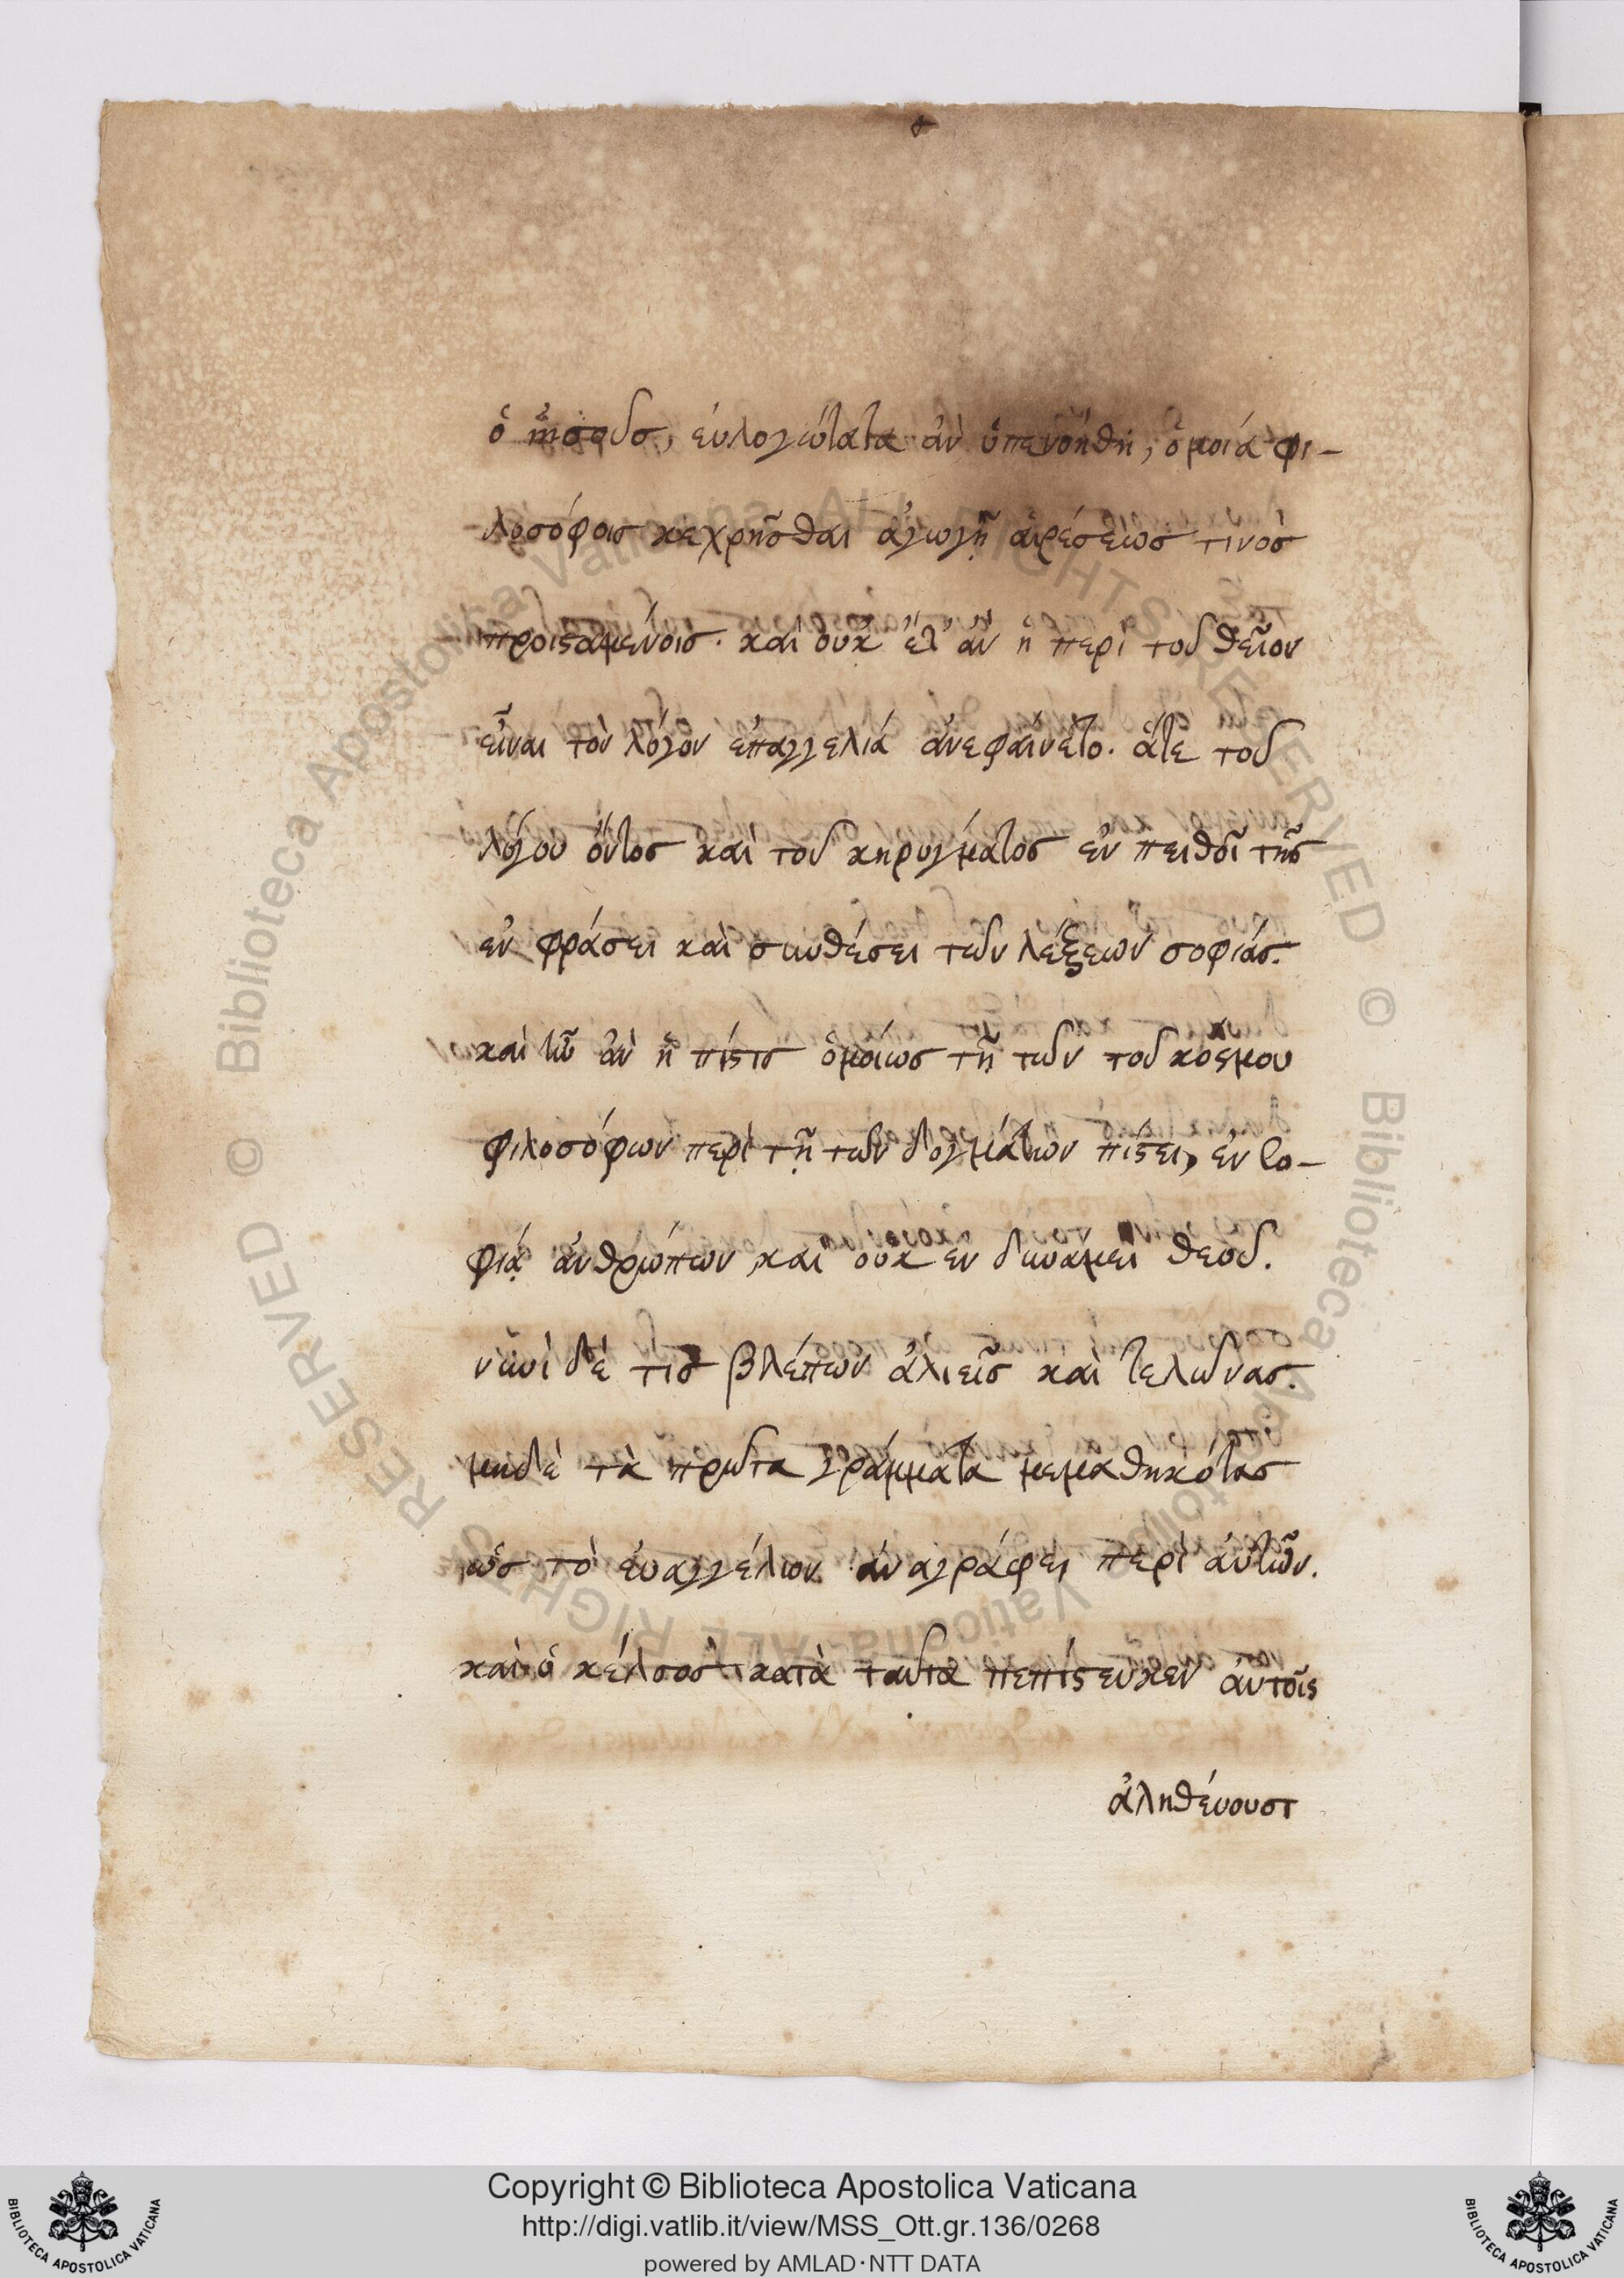 ὁ ἰησοῦσ, εὐλογώτατα ἂν ὑπενοήθη, ὁμοία φι-
λοσόφοισ κεχρῆσθαι ἀγωγῇ αἱρέσεώσ τινοσ
προισαμένοισ. καὶ οὐκ ἔτ' ἂν ἡ περὶ τοῦ θεῖον
εἶναι τὸν λόγον ἐπαγγελία ἀνεφαίνετο. ἅτε τοῦ
λόγου ὄντοσ καὶ τοῦ κηρύγματοσ ἐν πειθοῖ τῆσ
ἐν φράσει καὶ συνθέσει τῶν λέξεων σοφίασ.
καὶ ἦν ἂν ἡ πίστισ ὁμοίωσ τῇ τῶν τοῦ κόσμου
φιλοσόφων περὶ τῇ τῶν δογμάτων πίστει, ἐν σο-
φίᾳ ἀνθρώπων, καὶ οὐκ ἐν δυνάμει θεοῦ.
νυνὶ δέ τισ βλέπων ἁλιεῖσ καὶ τελώνασ.
μηδὲ τὰ πρῶτα γράμματα μεμαθηκότασ
ὡσ τὸ εὐαγγέλιον ἀναγράφει περὶ αὐτῶν.
καὶ ὁ κέλσοσ κατὰ ταῦτα πεπίστευκεν αὐτοῖς
ἀληθεύουσι
Copyright © Biblioteca Apostolica Vaticana
http://digi.vatlib.it/view/MSS_Ott.gr.136/0268
powered by AMLAD·NTT DATA
BIBLIOTECA APOSTOLICA VATICANA
BIBLIOTECA APOSTOLICA VATICANA
© Biblioteca Apostolica Vaticana ALL RIGHTS RESERVED
© Biblioteca Apostolica Vaticana ALL RIGHTS RESERVED